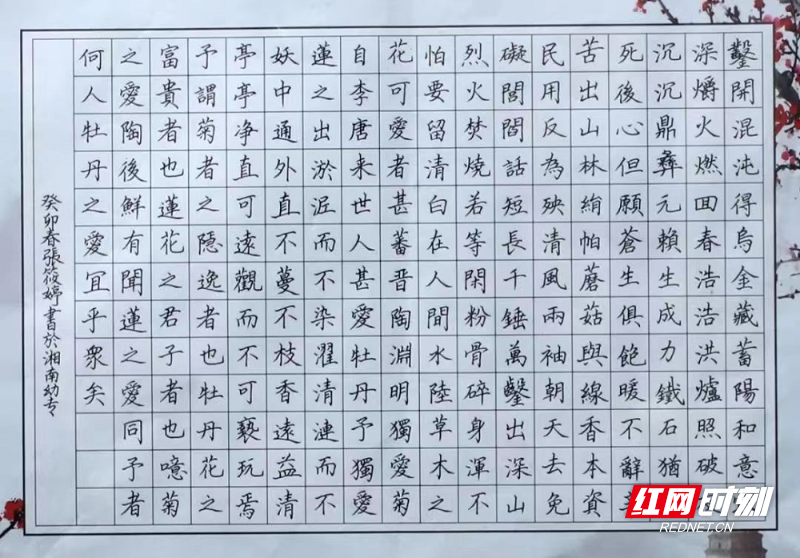 鑿開混沌得烏金藏蓄陽和意
深爝火燃回春浩浩洪爐照破
沉沉鼎彝元賴生成力鐵石猶
死後心但願蒼生俱飽暖不辭
苦出山林絹帕蘑菇與線香本資
民用反為殃清風兩袖朝天去免
礙閭閻話短長千錘萬鑿出深山
烈火焚燒若等閑粉骨碎身渾不
怕要留清白在人間水陸草木之
花可愛者甚蕃晉陶淵明獨愛菊
自李唐来世人甚愛牡丹予獨愛
蓮之出淤泥而不染濯清漣而不
妖中通外直不蔓不枝香遠益清
亭亭净直可遠觀而不可褻玩焉
予謂菊者之隱逸者也牡丹花之
富貴者也蓮花之君子者也噫菊
之愛陶後鮮有聞蓮之愛同予者
何人牡丹之愛宜乎衆矣
癸卯春張筱婷書於湘南幼专
红网时刻
REDNET.CN